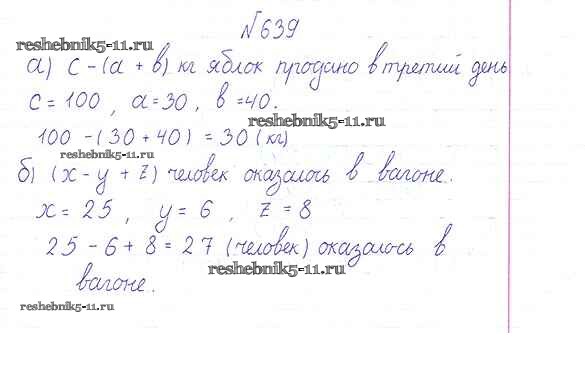 №639
reshebnik5-11.ru
а) с-(а+в) кг яблок продано в третий день
с=100, а=30, в=40.
reshebnik5-11.ru
100-(30+40)=30(кг)
reshebnik5-11.ru
б) (х-у+z) человек оказалось в вагоне.
х=25, у=6, z=8
25-6+8=27 (человек) оказалось в
reshebnik5-11.ru
вагоне.
reshebnik5-11.ru